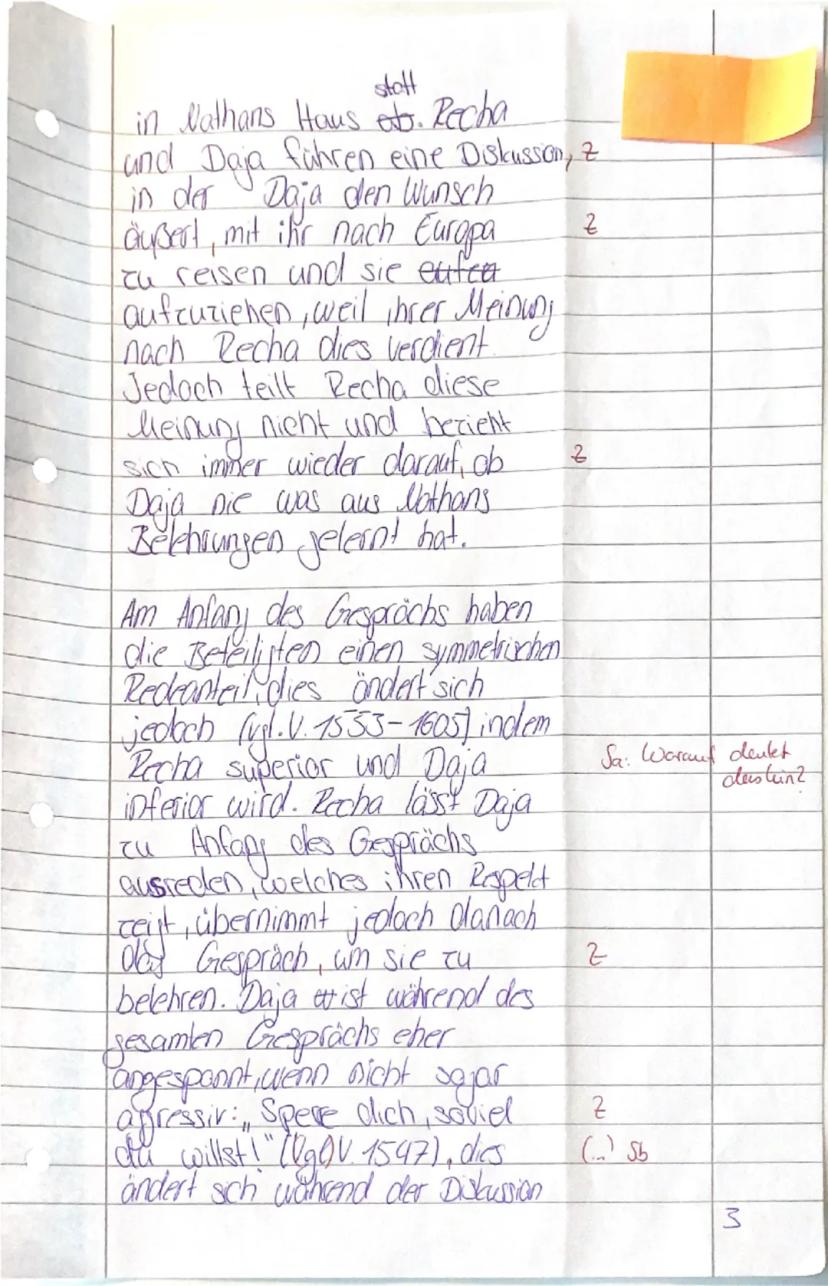 statt
in Nathans Haus ab. Recha
und Daja führen eine Diskussion, Z
in der Daja den Wunsch
äußert, mit ihr nach Europa Z
zu reisen und sie
aufzuziehen, weil ihrer Meinung
nach Recha dies verdient.
Jedoch teilt Recha diese
Meinung nicht und bezieht
sich immer wieder darauf, ob Z
Daja nie was aus Nathans
Belehrungen gelernt hat.
Am Anfang des Gesprächs haben
die Beteiligten einen symmetrischen
Redeanteil, dies ändert sich
jedoch (vgl. V. 1553-1605) indem
Recha superior und Daja Sa: Worauf deutet
inferior wird. Recha lässt Daja das hin?
zu Anfang des Gesprächs
ausreden, welches ihren Respekt
zeigt, übernimmt jedoch danach
das Gespräch, um sie zu Z
belehren. Daja ist während des
gesamten Gesprächs eher
angespannt, wenn nicht sogar
agressiv: „Sperre dich, soviel Z
du willst!" (Vgl V. 1547), dies (...) Sb
ändert sich während der Diskussion
3